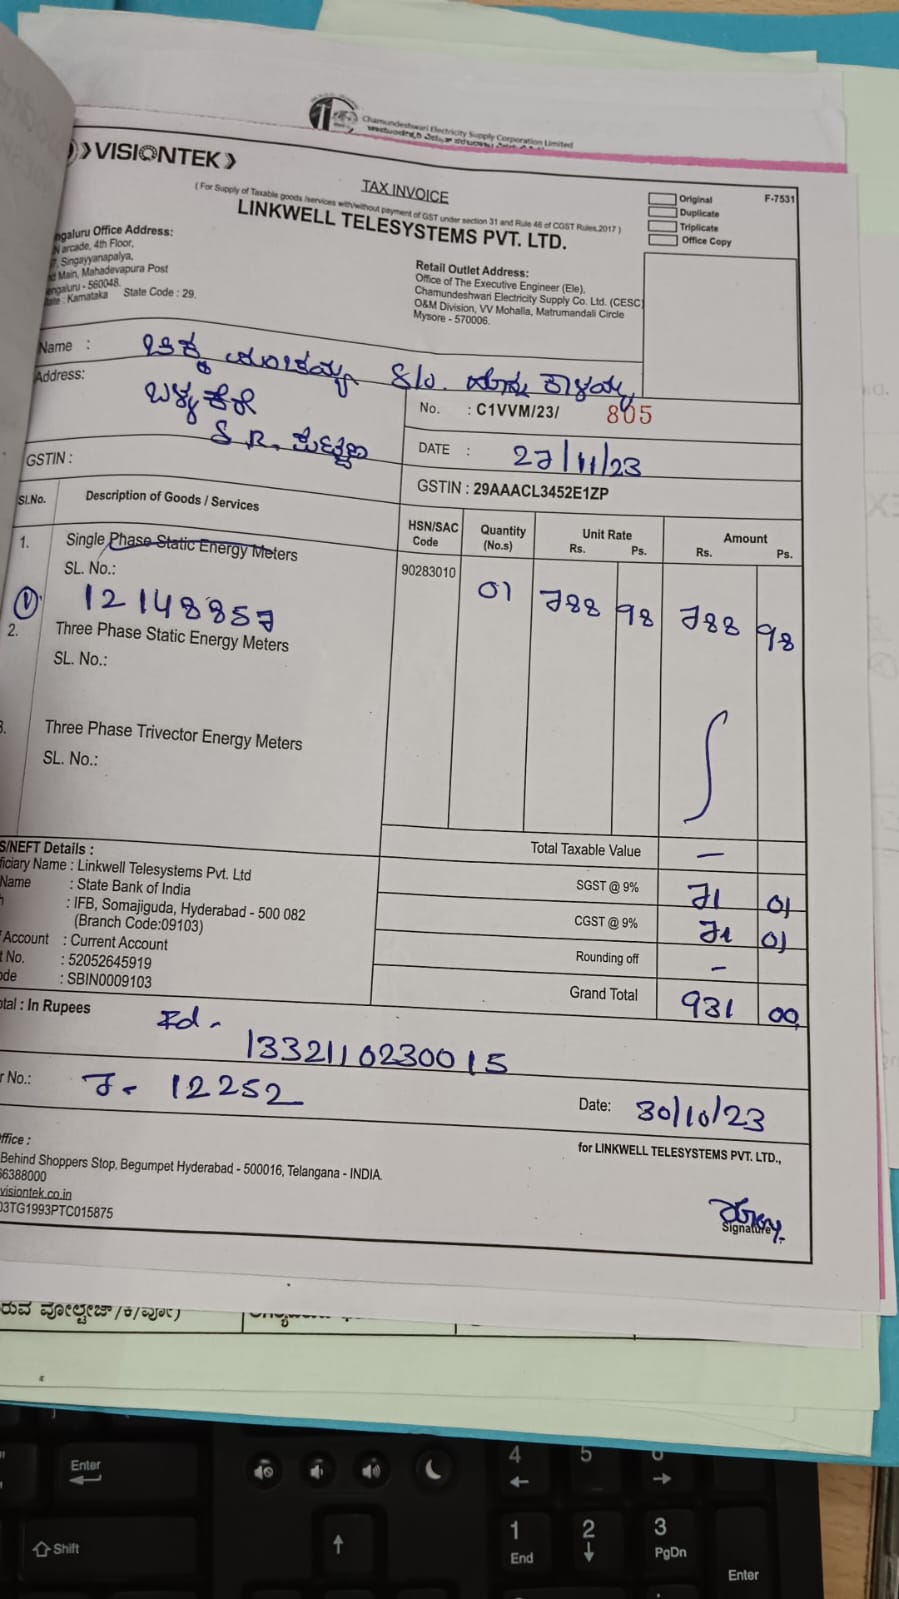 Chamundeshwari Electricity Supply Corporation Limited
VISIONTEK
TAX INVOICE
( For Supply of Taxable goods /services with/without payment of GST under section 31 and Rule 46 of CGST Rules,2017 )
LINKWELL TELESYSTEMS PVT. LTD.
Original
Duplicate
Triplicate
Office Copy
F-7531
Office Address:
arcade, 4th Floor,
Singayyanapalya,
Main, Mahadevapura Post
- 560048.
Karnataka State Code : 29.
Retail Outlet Address:
Office of The Executive Engineer (Ele),
Chamundeshwari Electricity Supply Co. Ltd. (CESC)
O&M Division, VV Mohalla, Matrumandali Circle
Mysore - 570006.
Name :
S/o.
Address:
S.R.
No. : C1VVM/23/ 805
DATE : 27/11/23
GSTIN :
GSTIN : 29AAACL3452E1ZP
Sl.No. Description of Goods / Services HSN/SAC Code Quantity (No.s) Unit Rate Rs. Ps. Amount Rs. Ps.
1. Single Phase Static Energy Meters
SL. No.: 90283010 01 788 98 788 98
12148857
2. Three Phase Static Energy Meters
SL. No.:
3. Three Phase Trivector Energy Meters
SL. No.:
Total Taxable Value –
SGST @ 9% 71 01
CGST @ 9% 71 01
Rounding off –
Grand Total 931 00
S/NEFT Details :
ficiary Name : Linkwell Telesystems Pvt. Ltd
Name : State Bank of India
: IFB, Somajiguda, Hyderabad - 500 082
(Branch Code:09103)
Account : Current Account
No. : 52052645919
ode : SBIN0009103
otal : In Rupees
1332110230015
r No.: 12252
Date: 30/10/23
for LINKWELL TELESYSTEMS PVT. LTD.,
ffice :
Behind Shoppers Stop, Begumpet Hyderabad - 500016, Telangana - INDIA.
66388000
visiontek.co.in
03TG1993PTC015875
Signature
ರುವ ವೋಲ್ಟೇಜ್/ಕಿ/ವೋ)
Enter
Shift
4
5
1
End
2
3
PgDn
Enter